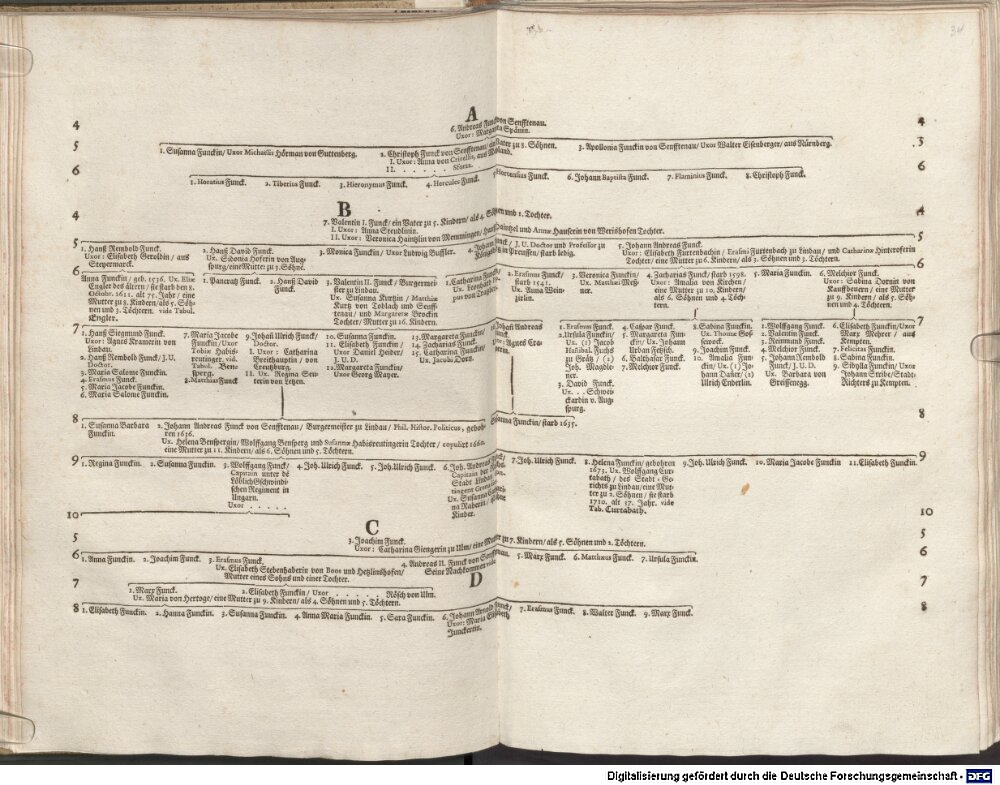 34
A
4 6. Andreas Funck von Senfftenau. 4
Uxor: Margareta Spänin.
5 1. Susanna Funckin/ Uxor Michaëlis Hörman von Guttenberg. 2. Christoph Funck von Senfftenau/ ein Vater zu 8. Söhnen. 3. Apollonia Funckin von Senfftenau/ Uxor Walter Eisenberger/ aus Nürnberg. 5
I. Uxor: Anna von Crivellis, aus Mayland.
II. . . . . . . Sforza.
6 1. Horatius Funck. 2. Tiberius Funck. 3. Hieronymus Funck. 4. Hercules Funck. 5. Hortensius Funck. 6. Johann Baptista Funck. 7. Flaminius Funck. 8. Christoph Funck. 6
B
4 7. Valentin I. Funck/ ein Vater zu 5. Kindern/ als 4. Söhnen und 1. Tochter. 4
I. Uxor: Anna Steudlinin.
II. Uxor: Veronica Haintzlin von Memmingen/ Hanß Haintzel und Annæ Hauserin von Werishofen Tochter.
5 5
1. Hanß Rembold Funck.
Uxor: Elisabeth Geroldin/ aus
Steyermarck.
2. Hanß David Funck.
Ux. Sidonia Hoferin von Aug-
spurg/ eine Mutter zu 3. Söhne.
3. Monica Funckin/ Uxor Ludwig Buffler.
4. Johann Funck/ J. U. Doctor und Professor zu
Königsberg in Preussen/ starb ledig.
5. Johann Andreas Funck.
Uxor: Elisabeth Furtenbachin/ Erasmi Furtenbach zu Lindau/ und Catharinæ Hinteroferin
Tochter/ eine Mutter zu 6. Kindern/ als 3. Söhnen und 3. Töchtern.
6 6
Anna Funckin/ geb. 1536. Ux. Eliæ
Engler des ältern/ sie starb den 8.
Octobr. 1611. alt 75. Jahr/ eine
Mutter zu 8. Kindern/ als 5. Söh-
nen und 3. Töchtern. vide Tabul.
Engler.
1. Pancratz Funck. 2. Hanß David
Funck.
3. Valentin II. Funck/ Burgermei-
ster zu Lindau.
Ux. Susanna Kurtzin/ Matthiæ
Kurtz von Toblach und Senff-
tenau/ und Margaretæ Brockin
Tochter/ Mutter zu 16. Kindern.
1. Catharina Funckin/
Ux. Leonhard
2. Erasmus Funck/
starb 1541.
Ux. Anna Wein-
zirlin.
3. Veronica Funckin/
Ux. Matthæi Meß-
ner.
4. Zacharias Funck/ starb 1598.
Uxor: Amalia von Kirchen/
eine Mutter zu 10. Kindern/
als 6. Söhnen und 4. Töch-
tern.
5. Maria Funckin.
6. Melchior Funck.
Uxor: Sabina Dornin von
Kauffbeuren/ eine Mutter
zu 9. Kindern/ als 5. Söh-
nen und 4. Töchtern.
7 7
1. Hanß Siegmund Funck.
Uxor: Agnes Kramerin von
Lindau.
2. Hanß Rembold Funck/ J. U.
Doctor.
3. Maria Salome Funckin.
4. Erasmus Funck.
5. Maria Jacobe Funckin.
6. Maria Salome Funckin.
7. Maria Jacobe
Funckin/ Uxor
Tobiæ Habis-
reutinger, vid.
Tabul. Ben-
sperg.
8. Matthæus Funck
9. Johañ Ulrich Funck/
Doctor.
I. Uxor: Catharina
Breithauptin/ von
Creutzburg.
II. Ux. Regina Seu-
terin von Letzen.
10. Susanna Funckin.
11. Elisabeth Funckin/
Uxor Daniel Heider/
J. U. D.
12. Margareta Funckin/
Uxor Georg Mayer.
13. Margareta Funckin.
14. Zacharias Funck.
15. Catharina Funckin/
Ux. Jacobi
Johañ Andreas
Funck.
Uxor: Agnes Cra-
merin.
1. Erasmus Funck.
2. Ursula Funckin/
Ux. (1) Jacob
Hañibal Fuchs
zu Grätz/ (2)
Joh. Magdlo-
ner.
3. David Funck.
Ux. . . Schwei-
ckardin v. Aug-
spurg.
4. Caspar Funck.
5. Maria Func-
kin/ Ux. Johann
Urban Fetzisch.
6. Balthasar Funck.
7. Melchior Funck.
8. Sabina Funckin.
Ux. Thomæ Gos-
serock.
9. Joachim Funck.
10. Amalia Fun-
ckin/ Ux. (1) Jo-
hann Dañer/ (2)
Ulrich Enderlin.
1. Wolffgang Funck.
2. Valentin Funck.
3. Reinmund Funck.
4. Melchior Funck.
5. Johann Rembold
Funck/ J. U. D.
Ux. Barbara von
Greiffenegg.
6. Elisabeth Funckin/ Uxor
Marx Mehrer/ aus
Kempten.
7. Felicitas Funckin.
8. Sabina Funckin.
9. Sibylla Funckin/ Uxor
Johann Stribe/ Stadt-
Richters zu Kempten.
8 8
1. Susanna Barbara
Funckin.
2. Johann Andreas Funck von Senfftenau/ Burgermeister zu Lindau/ Phil. Histor. Politicus, geboh-
ren 1636.
Ux. Helena Benspergin/ Wolffgang Bensperg und Susannæ Habisreutingerin Tochter/ copulirt 1660.
eine Mutter zu 11. Kindern/ als 6. Söhnen und 5. Töchtern.
Johanna Funckin/ starb 1635.
9 9
1. Regina Funckin. 2. Susanna Funckin. 3. Wolffgang Funck/
Capitain unter de
Löblich Gschwindi-
schen Regiment in
Ungarn.
Uxor . . . . . .
4. Joh. Ulrich Funck. 5. Joh. Ulrich Funck.
6. Joh. Andreas Funck/
Capitain der
Stadt Lindau
tingent
Ux. Susanna
na Raberin/
Kinder.
7. Joh. Ulrich Funck.
8. Helena Funckin/ gebohren
1673. Ux. Wolffgang Cur-
tabath/ des Stadt-Ge-
richts zu Lindau/ eine Mut-
ter zu 2. Söhnen/ sie starb
1710. alt 37. Jahr. vide
Tab. Curtabath.
9. Joh. Ulrich Funck. 10. Maria Jacobe Funckin 11. Elisabeth Funckin.
10 10
C
5 3. Joachim Funck. 5
Uxor: Catharina Giengerin zu Ulm/ eine Mutter zu 7. Kindern/ als 5. Söhnen und 2. Töchtern.
6 1. Anna Funckin. 2. Joachim Funck. 3. Erasmus Funck. 4. Andreas II. Funck von Senfftenau. 5. Marx Funck. 6. Matthæus Funck. 7. Ursula Funckin. 6
Ux. Elisabeth Stebenhaberin von Boos und Hetzlinshofen/
Mutter eines Sohns und einer Tochter.
Seine Nachkommen vide
D
7 1. Marx Funck. 2. Elisabeth Funckin/ Uxor . . . . . . Rösch von Ulm. 7
Ux. Maria von Hertoge/ eine Mutter zu 9. Kindern/ als 4. Söhnen und 5. Töchtern.
8 1. Elisabeth Funckin. 2. Hanna Funckin. 3. Susanna Funckin. 4. Anna Maria Funckin. 5. Sara Funckin. 6. Johann Arnold Funck/ 7. Erasmus Funck. 8. Walter Funck. 9. Marx Funck. 8
Uxor: Maria Elisabeth
Junckertin.
Digitalisierung gefördert durch die Deutsche Forschungsgemeinschaft - DFG